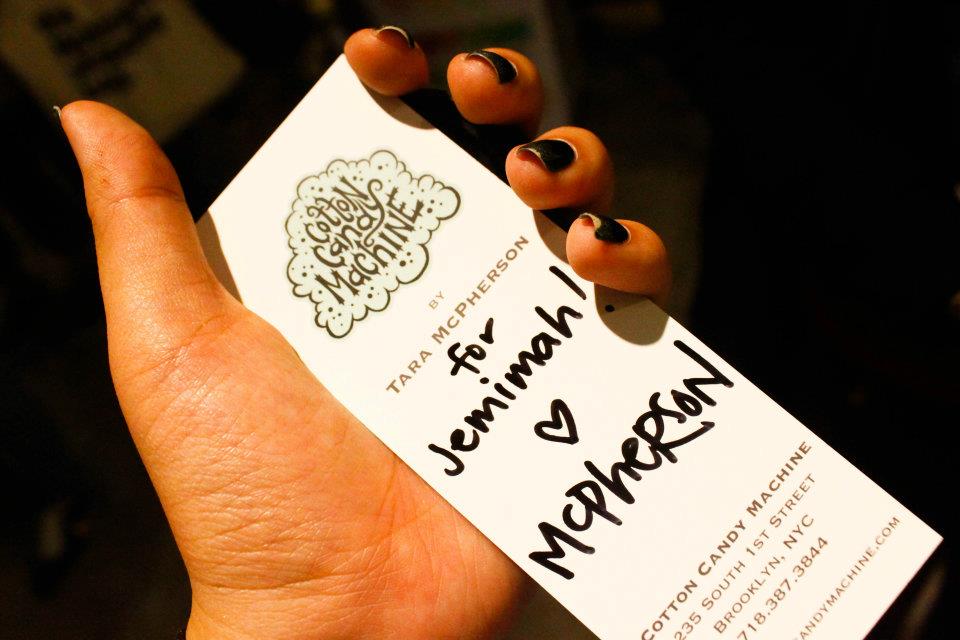 Cotton
Candy
Machine
BY
TARA MCPHERSON
for
Jemimah!
♡
McPHERSON
COTTON CANDY MACHINE
235 SOUTH 1ST STREET
BROOKLYN, NYC
718.387.3844
ANDYMACHINE.COM